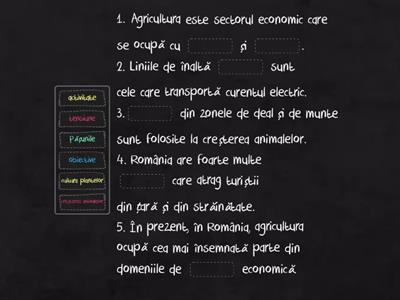 1. Agricultura este sectorul economic care
se ocupă cu și .
2. Liniile de înaltă sunt
cele care transportă curentul electric.
3. din zonele de deal și de munte
sunt folosite la creșterea animalelor.
4. România are foarte multe
care atrag turiștii
din țară și din străinătate.
5. În prezent, în România, agricultura
ocupă cea mai însemnată parte din
domeniile de economică
activitate
tensiune
Pășunile
obiective
cultura plantelor
creșterea animalelor